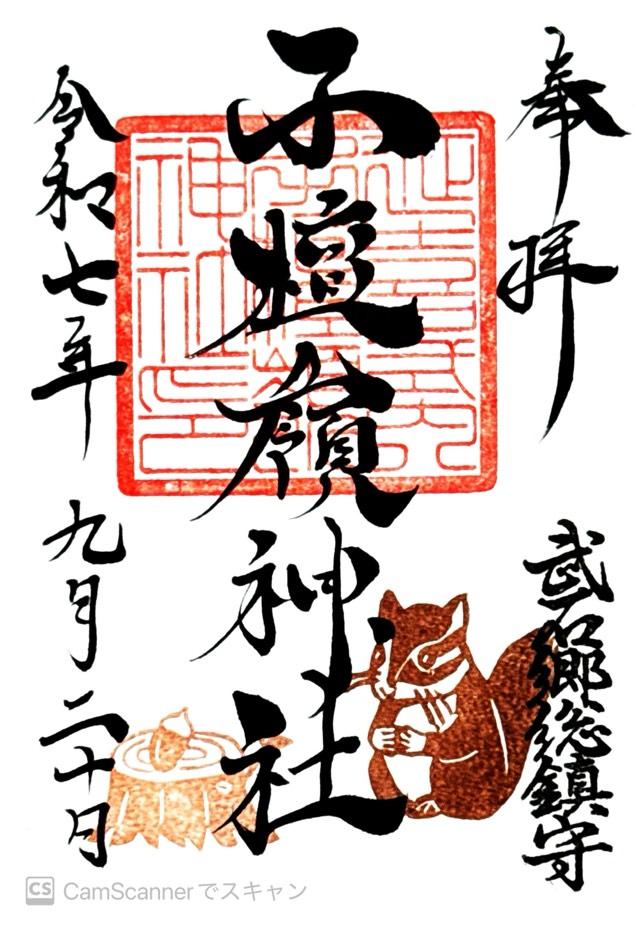 奉拝
武石郷総鎮守
子檀嶺神社
令和七年九月二十日
CS CamScannerでスキャン